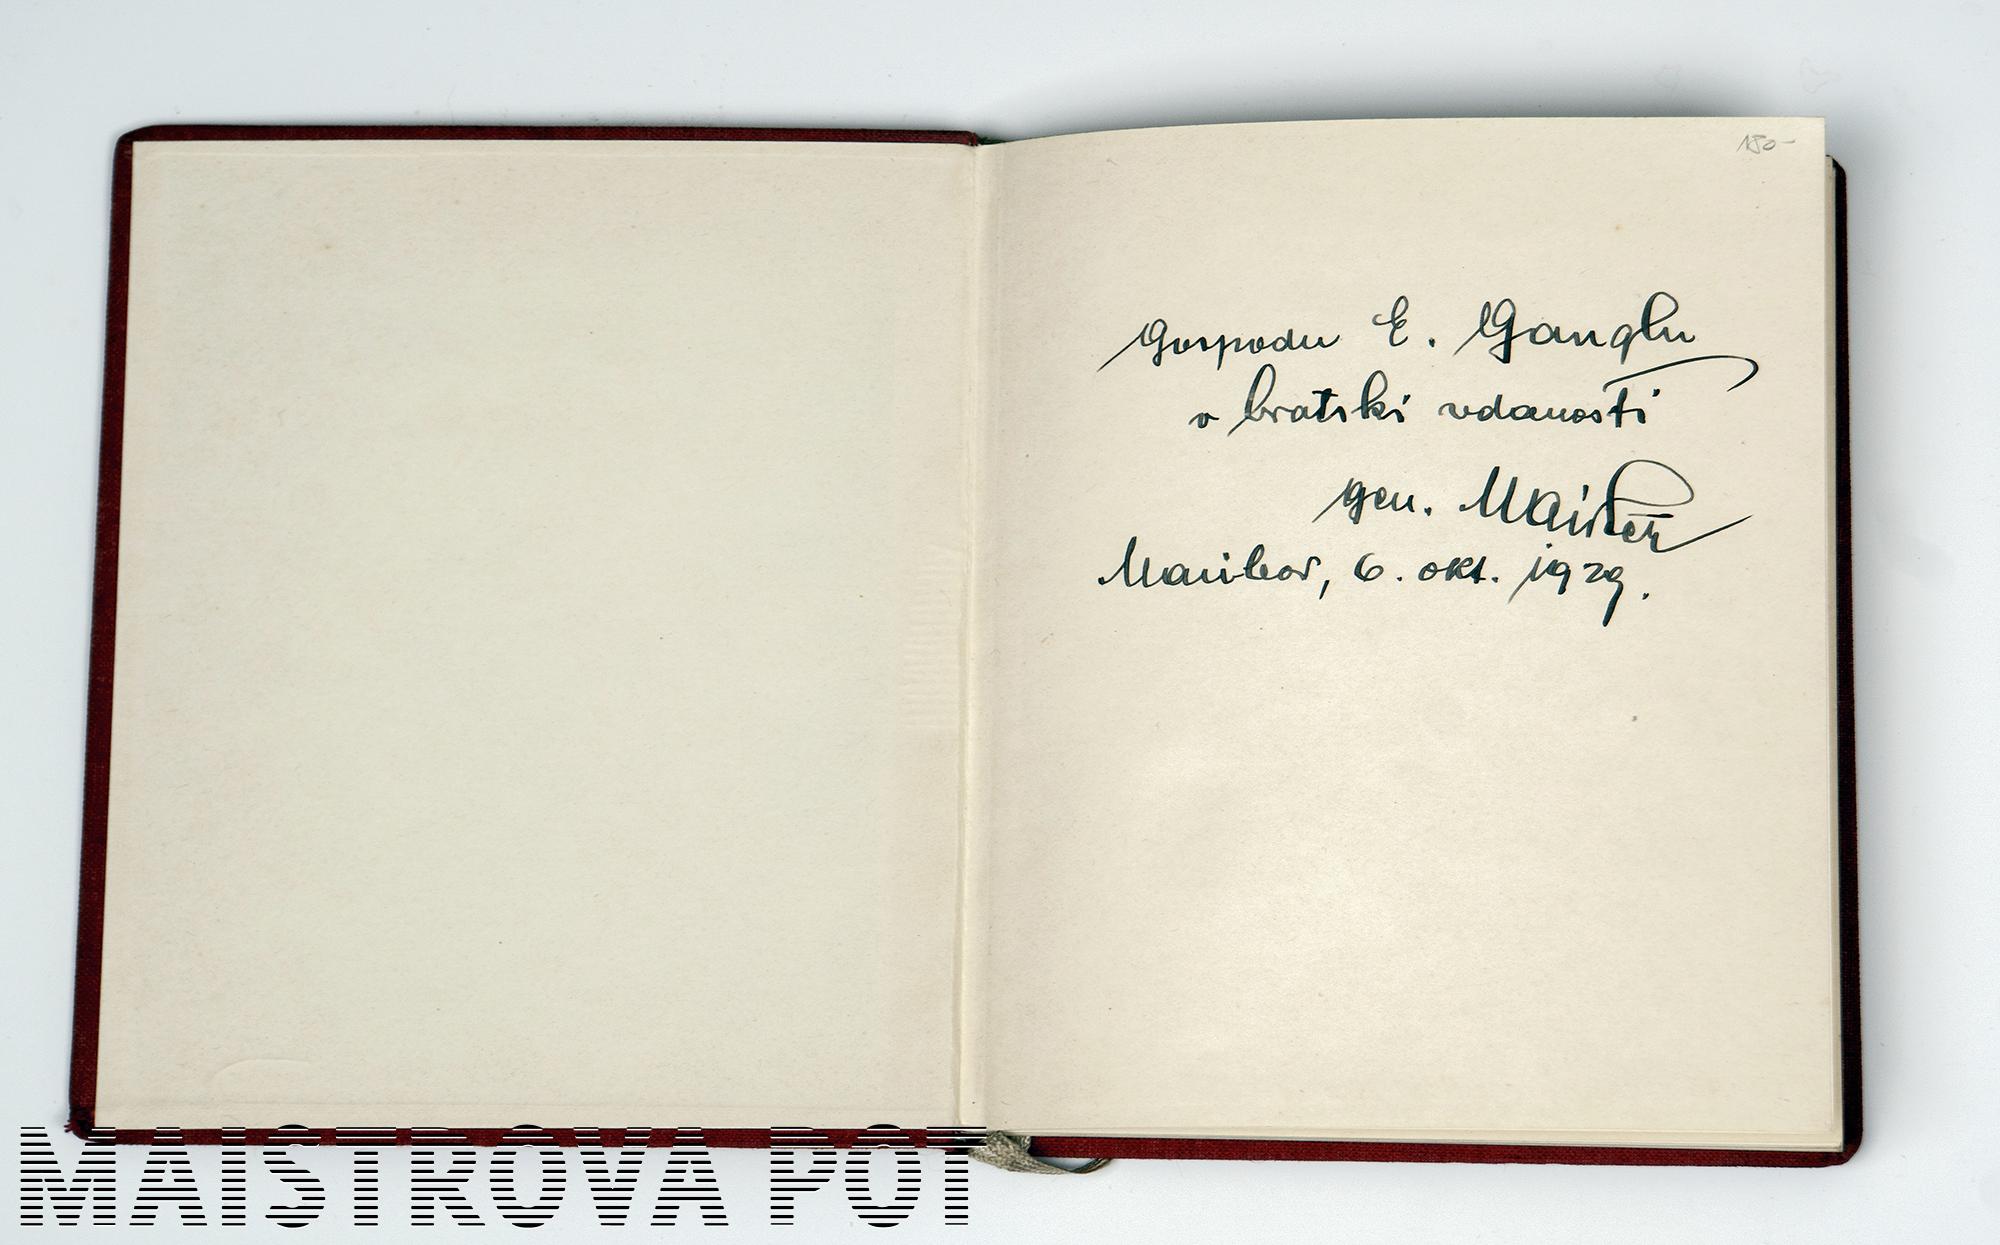 150-
Gospodu E. Ganglu
v bratski vdanosti
gen. Maister
Maribor, 6. okt. 1929.
MAISTROVA POT